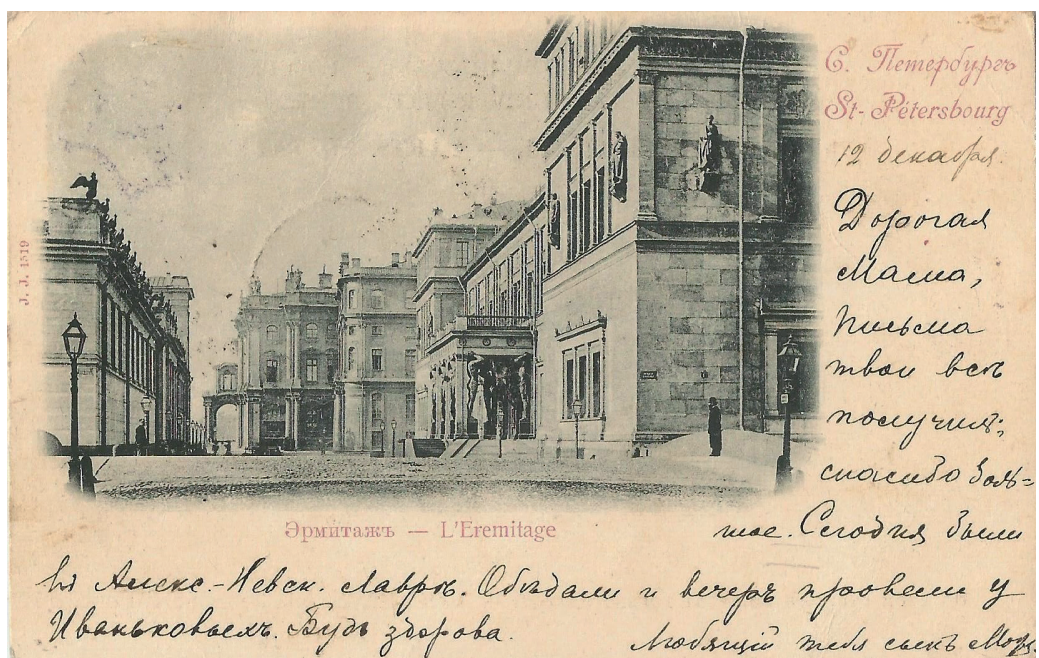 С. Петербургъ
St-Pétersbourg
12 декабря.
Дорогая
Мама,
письма
твои всѣ
получилъ;
спасибо боль=
шое. Сегодня были
въ Алекс.-Невск. лаврѣ. Обѣдали и вечеръ провели у
Иваньковыхъ. Будь здорова.
Любящій тебя сынъ
Эрмитажъ — L'Eremitage
J. J. 1519